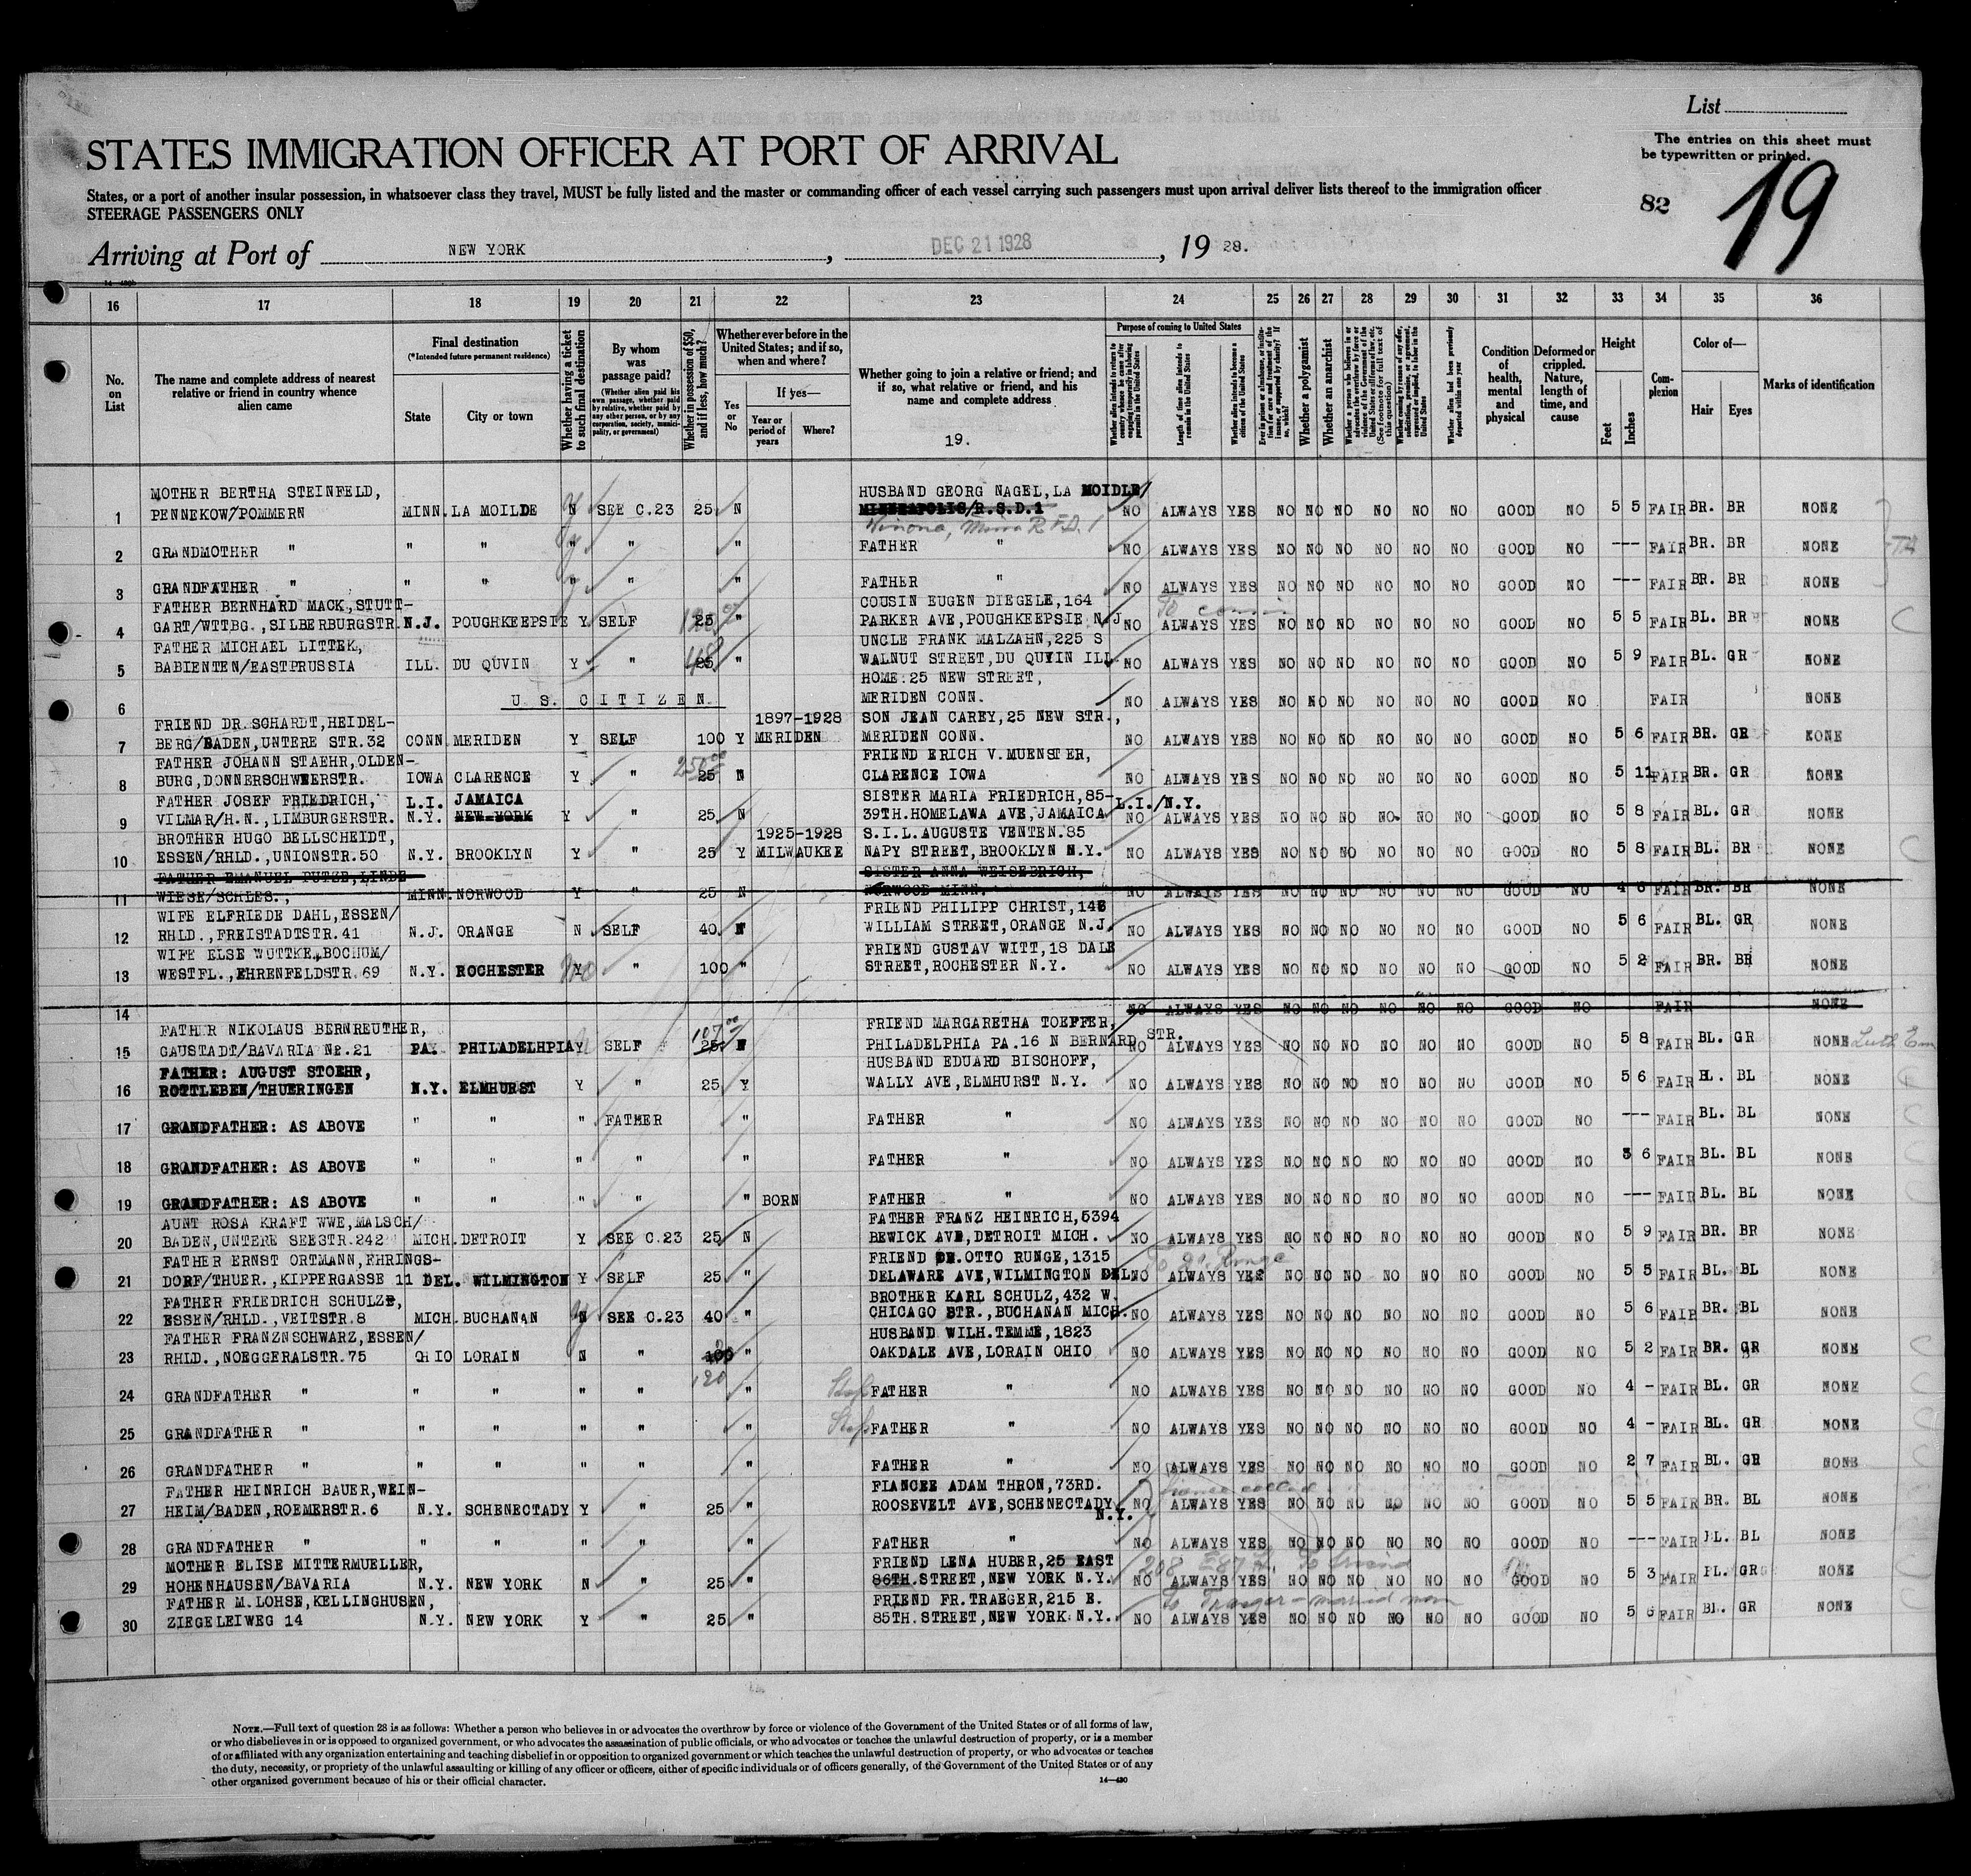 List
The entries on this sheet must
be typewritten or printed.
STATES IMMIGRATION OFFICER AT PORT OF ARRIVAL
82
19
States, or a port of another insular possession, in whatsoever class they travel, MUST be fully listed and the master or commanding officer of each vessel carrying such passengers must upon arrival deliver lists thereof to the immigration officer
STEERAGE PASSENGERS ONLY
Arriving at Port of NEW YORK, DEC 21 1928, 19 28.
16 17 18 19 20 21 22 23 24 25 26 27 28 29 30 31 32 33 34 35 36
No. on List
The name and complete address of nearest relative or friend in country whence alien came
Final destination
(*Intended future permanent residence)
State
City or town
Whether having a ticket to such final destination
By whom was passage paid?
(Whether alien paid his own passage, whether paid by relative, whether paid by any other person, or by any corporation, society, municipality, or government)
Whether in possession of $50, and if less, how much?
Whether ever before in the United States; and if so, when and where?
Yes or No
If yes—
Year or period of years
Where?
Whether going to join a relative or friend; and if so, what relative or friend, and his name and complete address
19.
Purpose of coming to United States
Length of time alien intends to remain in the United States
Whether alien intends to become a citizen of the United States
Whether a polygamist
Whether an anarchist
Condition of health, mental and physical
Deformed or crippled. Nature, length of time, and cause
Height
Feet
Inches
Complexion
Color of—
Hair
Eyes
Marks of identification
MOTHER BERTHA STEINFELD, HUSBAND GEORG NAGEL, LA MOIDLE
1 PENNEKOW/POMMERN MINN. LA MOILDE N SEE C.23 25 N MINNEAPOLIS/R.S.D.1 NO ALWAYS YES NO NO NO NO NO NO GOOD NO 5 5 FAIR BR. BR NONE
Winona, Minn R.F.D. 1
2 GRANDMOTHER " " " " " " FATHER " NO ALWAYS YES NO NO NO NO NO NO GOOD NO --- FAIR BR. BR NONE
3 GRANDFATHER " " " " " " FATHER " NO ALWAYS YES NO NO NO NO NO NO GOOD NO --- FAIR BR. BR NONE
FATHER BERNHARD MACK, STUTT- COUSIN EUGEN DIEGELE, 164 To cousin
4 GART/WTTBG., SILBERBURGSTR. N.J. POUGHKEEPSIE Y SELF 25 " PARKER AVE, POUGHKEEPSIE N.J NO ALWAYS YES NO NO NO NO NO NO GOOD NO 5 5 FAIR BL. BR NONE
FATHER MICHAEL LITTEK, UNCLE FRANK MALZAHN, 225 S
5 BABIENTEN/EASTPRUSSIA ILL. DU QUVIN Y " 25 " WALNUT STREET, DU QUVIN ILL. NO ALWAYS YES NO NO NO NO NO NO GOOD NO 5 9 FAIR BL. GR NONE
HOME: 25 NEW STREET,
6 U.S. CITIZEN MERIDEN CONN. NO ALWAYS YES NO NO NO NO NO NO GOOD NO FAIR NONE
FRIEND DR. SCHARDT, HEIDEL- 1897-1928 SON JEAN CAREY, 25 NEW STR.,
7 BERG/BADEN, UNTERE STR.32 CONN. MERIDEN Y SELF 100 Y MERIDEN MERIDEN CONN. NO ALWAYS YES NO NO NO NO NO NO GOOD NO 5 6 FAIR BR. GR NONE
FATHER JOHANN STAEHR, OLDEN- FRIEND ERICH V. MUENSTER,
8 BURG, DONNERSCHWEERSTR. IOWA CLARENCE Y " 25 N CLARENCE IOWA NO ALWAYS YES NO NO NO NO NO NO GOOD NO 5 11 FAIR BR. GR NONE
FATHER JOSEF FRIEDRICH, L.I. JAMAICA SISTER MARIA FRIEDRICH, 85- L.I./N.Y.
9 VILMAR/H.N., LIMBURGERSTR. N.Y. NEW-YORK Y " 25 N 39TH. HOMELAWA AVE, JAMAICA NO ALWAYS YES NO NO NO NO NO NO GOOD NO 5 8 FAIR BL. GR NONE
BROTHER HUGO BELLSCHEIDT, 1925-1928 S.I.L. AUGUSTE VENTEN. 85
10 ESSEN/RHLD., UNIONSTR.50 N.Y. BROOKLYN Y " 25 Y MILWAUKEE NAPY STREET, BROOKLYN N.Y. NO ALWAYS YES NO NO NO NO NO NO GOOD NO 5 8 FAIR BL. BR NONE
FATHER EMANUEL PUTZE, LINDE SISTER ANNA WEISEBRICH,
11 WIESE/SCHLES., MINN. NORWOOD Y " 25 N NORWOOD MINN. NO ALWAYS YES NO NO NO NO NO NO GOOD NO 4 6 FAIR BR. BR NONE
WIFE ELFRIEDE DAHL, ESSEN/ FRIEND PHILIPP CHRIST, 148
12 RHLD., FREISTADTSTR.41 N.J. ORANGE N SELF 40 N WILLIAM STREET, ORANGE N.J. NO ALWAYS YES NO NO NO NO NO NO GOOD NO 5 6 FAIR BL. GR NONE
WIFE ELSE WUTTKE, BOCHUM/ FRIEND GUSTAV WITT, 18 DALE
13 WESTFL., EHRENFELDSTR.69 N.Y. ROCHESTER Y " 100 " STREET, ROCHESTER N.Y. NO ALWAYS YES NO NO NO NO NO NO GOOD NO 5 2 FAIR BR. BR NONE
14 NO ALWAYS YES NO NO NO NO NO NO GOOD NO FAIR NONE
FATHER NIKOLAUS BERNREUTHER, 107 00 FRIEND MARGARETHA TOEFFER, STR.
15 GAUSTADT/BAVARIA NR.21 PA. PHILADELHPIA Y SELF 25 N PHILADELPHIA PA. 16 N BERNARD NO ALWAYS YES NO NO NO NO NO NO GOOD NO 5 8 FAIR BL. GR NONE
FATHER: AUGUST STOEHR, HUSBAND EDUARD BISCHOFF,
16 ROTTLEBEN/THUERINGEN N.Y. ELMHURST Y " 25 Y WALLY AVE, ELMHURST N.Y. NO ALWAYS YES NO NO NO NO NO NO GOOD NO 5 6 FAIR BL. BL NONE
17 GRANDFATHER: AS ABOVE " " " FATHER " FATHER " NO ALWAYS YES NO NO NO NO NO NO GOOD NO --- FAIR BL. BL NONE
18 GRANDFATHER: AS ABOVE " " " " " FATHER " NO ALWAYS YES NO NO NO NO NO NO GOOD NO 3 6 FAIR BL. BL NONE
19 GRANDFATHER: AS ABOVE " " " " " BORN FATHER " NO ALWAYS YES NO NO NO NO NO NO GOOD NO --- FAIR BL. BL NONE
AUNT ROSA KRAFT WWE, MALSCH/ FATHER FRANZ HEINRICH, 5394
20 BADEN, UNTERE SEESTR.242 MICH. DETROIT Y SEE C.23 25 N BEWICK AVE, DETROIT MICH. NO ALWAYS YES NO NO NO NO NO NO GOOD NO 5 9 FAIR BR. BR NONE
FATHER ERNST ORTMANN, EHRINGS- FRIEND DR. OTTO RUNGE, 1315 To Dr. Runge
21 DORF/THUER., KIPPERGASSE 11 DEL. WILMINGTON Y SELF 25 " DELAWARE AVE, WILMINGTON DEL. NO ALWAYS YES NO NO NO NO NO NO GOOD NO 5 5 FAIR BL. BL NONE
FATHER FRIEDRICH SCHULZE, BROTHER KARL SCHULZ, 432 W.
22 ESSEN/RHLD., VEITSTR.8 MICH. BUCHANAN N SEE C.23 40 " CHICAGO STR., BUCHANAN MICH. NO ALWAYS YES NO NO NO NO NO NO GOOD NO 5 6 FAIR BR. BL NONE
FATHER FRANZNSCHWARZ, ESSEN/ HUSBAND WILH. TEMME, 1823
23 RHLD., NOEGGERALSTR.75 OHIO LORAIN N " 100 " OAKDALE AVE, LORAIN OHIO NO ALWAYS YES NO NO NO NO NO NO GOOD NO 5 2 FAIR BR. GR NONE
120
24 GRANDFATHER " " " " " " FATHER " NO ALWAYS YES NO NO NO NO NO NO GOOD NO 4 - FAIR BL. GR NONE
25 GRANDFATHER " " " " " " FATHER " NO ALWAYS YES NO NO NO NO NO NO GOOD NO 4 - FAIR BL. GR NONE
26 GRANDFATHER " " " " " " FATHER " NO ALWAYS YES NO NO NO NO NO NO GOOD NO 2 7 FAIR BL. GR NONE
FATHER HEINRICH BAUER, WEIN- FIANCEE ADAM THRON, 73RD.
27 HEIM/BADEN, ROEMERSTR.6 N.Y. SCHENECTADY Y " 25 " ROOSEVELT AVE, SCHENECTADY N.Y. NO ALWAYS YES NO NO NO NO NO NO GOOD NO 5 5 FAIR BR. BL NONE
28 GRANDFATHER " " " " " " FATHER " NO ALWAYS YES NO NO NO NO NO NO GOOD NO --- FAIR BL. BL NONE
MOTHER ELISE MITTERMUELLER, FRIEND LENA HUBER, 25 EAST
29 HOHENHAUSEN/BAVARIA N.Y. NEW YORK N " 25 " 86TH. STREET, NEW YORK N.Y. NO ALWAYS YES NO NO NO NO NO NO GOOD NO 5 3 FAIR BL. GR NONE
FATHER M. LOHSE, KELLINGHUSEN, FRIEND FR. TRAEGER, 215 E. To Traeger - married man
30 ZIEGELEIWEG 14 N.Y. NEW YORK Y " 25 " 85TH. STREET, NEW YORK N.Y. NO ALWAYS YES NO NO NO NO NO NO GOOD NO 5 6 FAIR BL. GR NONE
NOTE.—Full text of question 28 is as follows: Whether a person who believes in or advocates the overthrow by force or violence of the Government of the United States or of all forms of law,
or who disbelieves in or is opposed to organized government, or who advocates the assassination of public officials, or who advocates or teaches the unlawful destruction of property, or is a member
of or affiliated with any organization entertaining and teaching disbelief in or opposition to organized government or which teaches the unlawful destruction of property, or who advocates or teaches
the duty, necessity, or propriety of the unlawful assaulting or killing of any officer or officers, either of specific individuals or of officers generally, of the Government of the United States or of any
other organized government because of his or their official character.
14—430